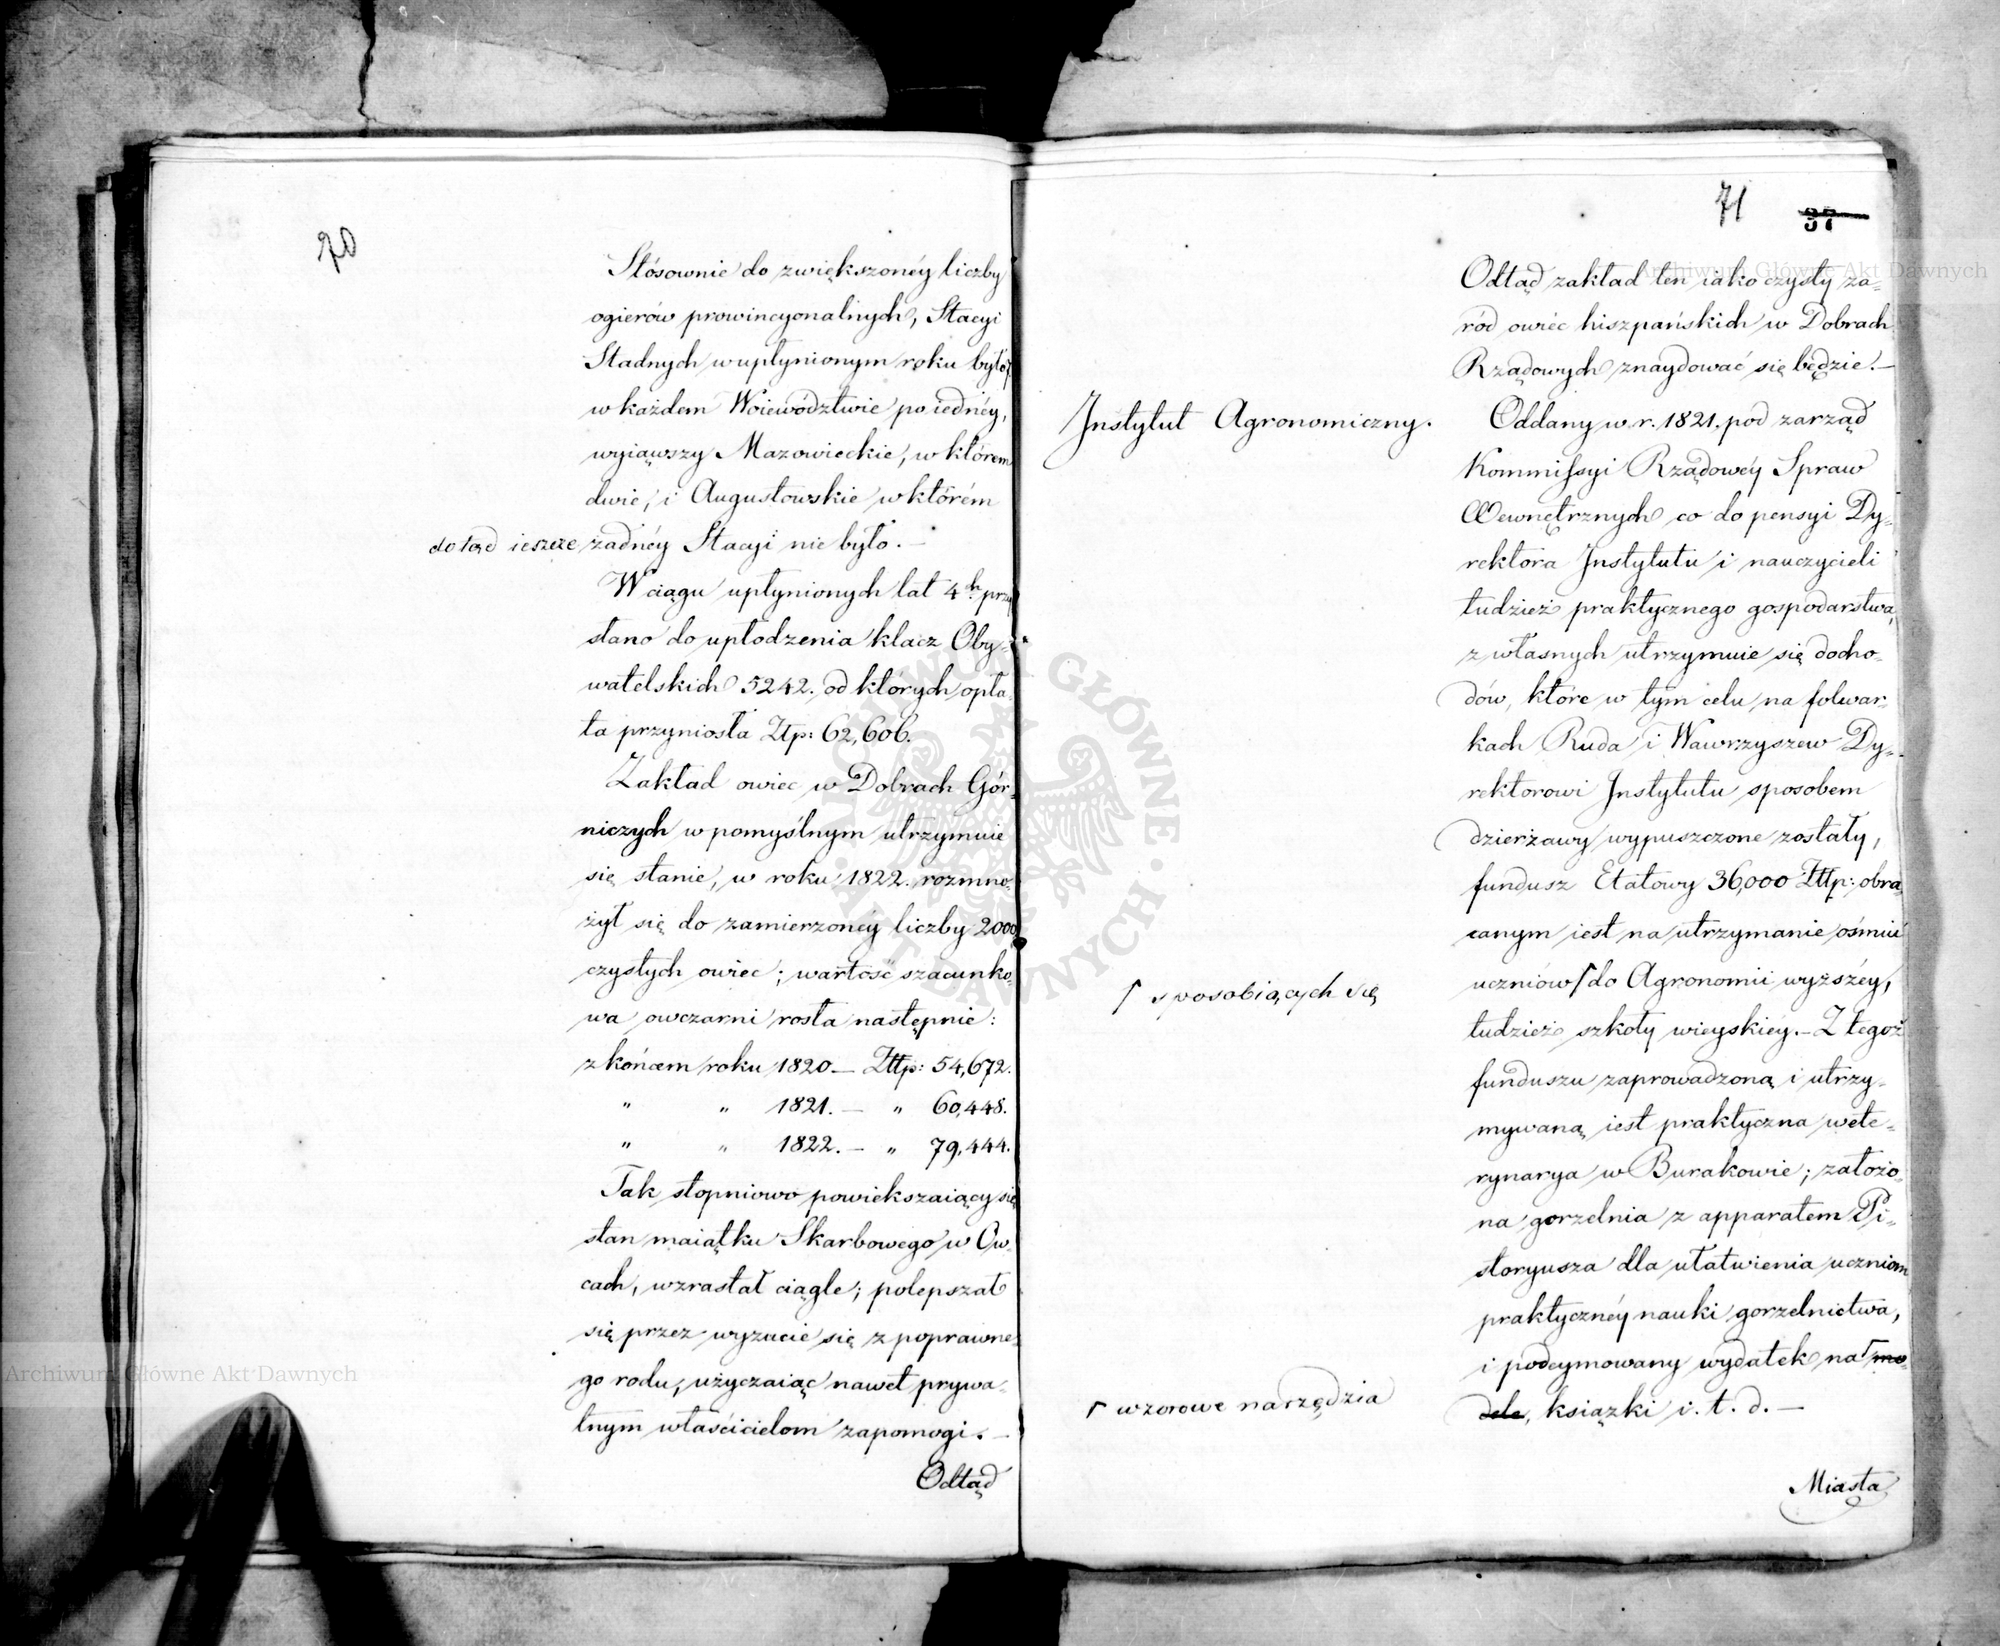 70
Stósownie do zwiększonéy liczby
ogierów prowincyonalnych, Stacyi
Stadnych w upłynionym roku było
w każdem Woiewództwie po iednéy,
wyiąwszy Mazowieckie, w którem
dwie, i Augustowskie w którém
dotąd ieszcze żadnéy Stacyi nie było. —
W ciągu upłynionych lat 4ch przy
stano do upłodzenia klacz Oby-
watelskich 5242. od których opła
ta przyniosła Złp: 62,606.
Zakład owiec w Dobrach Gór-
niczych w pomyślnym utrzymuie
się stanie, w roku 1822. rozmno-
żył się do zamierzonéy liczby 2000
czystych owiec; wartość szacunko-
wa owczarni rosła następnie:
z końcem roku 1820. — Złłp: 54,672.
" " 1821. — " 60,448.
" " 1822. — " 79,444.
Tak stopniowo powiekszaiący się
stan maiątku Skarbowego w Ow-
cach, wzrastał ciągle; polepszał
się przez wyzucie się z poprawne-
go rodu, użyczaiąc nawet prywa-
tnym właścicielom zapomogi. —
Odtąd
71
37
Odtąd zakład ten iako czysty za-
ród owiec hiszpańskich w Dobrach
Rządowych znaydować się będzie. —
Instytut Agronomiczny.
Oddany w r. 1821. pod zarząd
Kommissyi Rządowéy Spraw
Wewnętrznych co do pensyi Dy-
rektora Instytutu i nauczycieli
tudzież praktycznego gospodarstwa,
z własnych utrzymuie się docho-
dów, które w tym celu na folwar-
kach Ruda i Wawrzyszew Dy-
rektorowi Instytutu sposobem
dzierżawy wypuszczone zostały,
fundusz Etatowy 36,000 Złłp: obra
canym iest na utrzymanie ośmiu
uczniów ⌈ do Agronomii wyższéy,
⌈ sposobiących się
tudzież szkoły wieyskiéy. — Z tegoż
funduszu zaprowadzoną i utrzy-
mywaną iest praktyczna wete-
rynarya w Burakowie; założo-
na gorzelnia z apparatem Pi-
storyusza dla ułatwienia uczniom
praktycznéy nauki gorzelnictwa,
i podeymowany wydatek na ⌈ mo-
dele, książki i. t. d. —
⌈ wzorowe narzędzia
Miasta
Archiwum Główne Akt Dawnych
Archiwum Główne Akt Dawnych
ARCHIWUM GŁÓWNE · AKT DAWNYCH ·